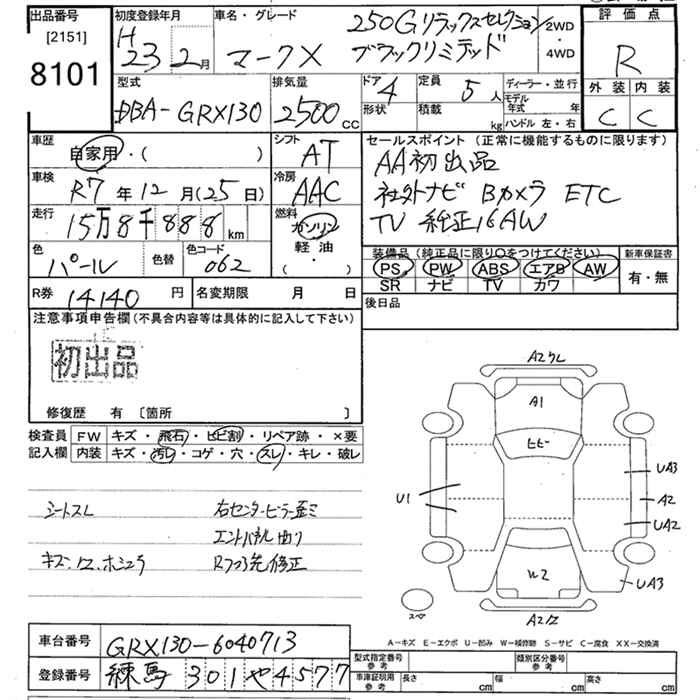 出品番号
[2151]
8101
初度登録年月
H 23 2月
車名・グレード
マークX
250G リラックスセレクション
ブラックリミテッド
2WD
・
4WD
評価点
R
外装 内装
C C
型式
DBA-GRX130
排気量
2500 cc
ドア 4
形状
定員 5人
積載 kg
ディーラー・並行
モデル年式 年
ハンドル 左・右
車歴
自家用・( )
シフト
AT
セールスポイント (正常に機能するものに限ります)
AA初出品
社外ナビ Bカメラ ETC
TV 純正16AW
車検
R7年12月(25日)
冷房
AAC
走行
15万8千888km
燃料
ガソリン
軽油
( ・ )
色
パール
色替
色コード
062
装備品 (純正品に限り○をつけてください)
PS PW ABS エアB AW
SR ナビ TV カワ
新車保証書
有・無
R券 14140円
名変期限 月 日
後日品
注意事項申告欄 (不具合内容等は具体的に記入して下さい)
初出品
修復歴 有 [箇所 ]
検査員記入欄
FW キズ・飛石・ヒビ割・リペア跡・×要
内装 キズ・汚レ・コゲ・穴・スレ・キレ・破レ
シートスレ
右センターピラー歪ミ
エンドパネル曲り
キズ・凹・ホシュウ
Rフロア先修正
A2ワレ
A1
ヒビ
U1
UA3
A2
UA2
W2
UA3
スペア
A2凹
A-キズ E-エクボ U-凹み W-補修跡 S-サビ C-腐食 XX-交換済
車台番号 GRX130-6040713
登録番号 練馬 301 や 4577
型式指定番号 参考
類別区分番号 参考
車庫証明用 参考
長さ cm
幅 cm
高さ cm